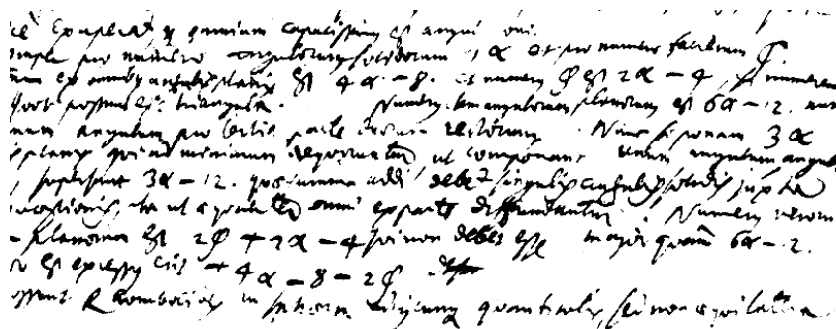 et omnium capacissim est angui oni
pro numero angulorum solidorum α et pro numero facierum φ
ex omnibus angulis planis est 4α - 8. et numerus φ est 2α - 4, si numeren
quot possunt esse triangula. Numerus item angulorum planorum est 6α - 12. num
unum angulum pro tertia parte duorum rectorum. Nunc si ponam 3α
planis qui ad minimum requiruntur ut componant unum angulum angul
, supersunt 3α - 12. quae summa addi debet singulis angulis solidis juxta
quaestionis, ita ut aequaliter omni ex parte diffundantur. Numerus verorum
planorum est 2φ + 2α - 4 qui non debet esse major quam 6α - 12.
est excessus erit + 4α - 8 - 2φ.
ossunt Rhomboides in quantitatis, sed non aequilatera